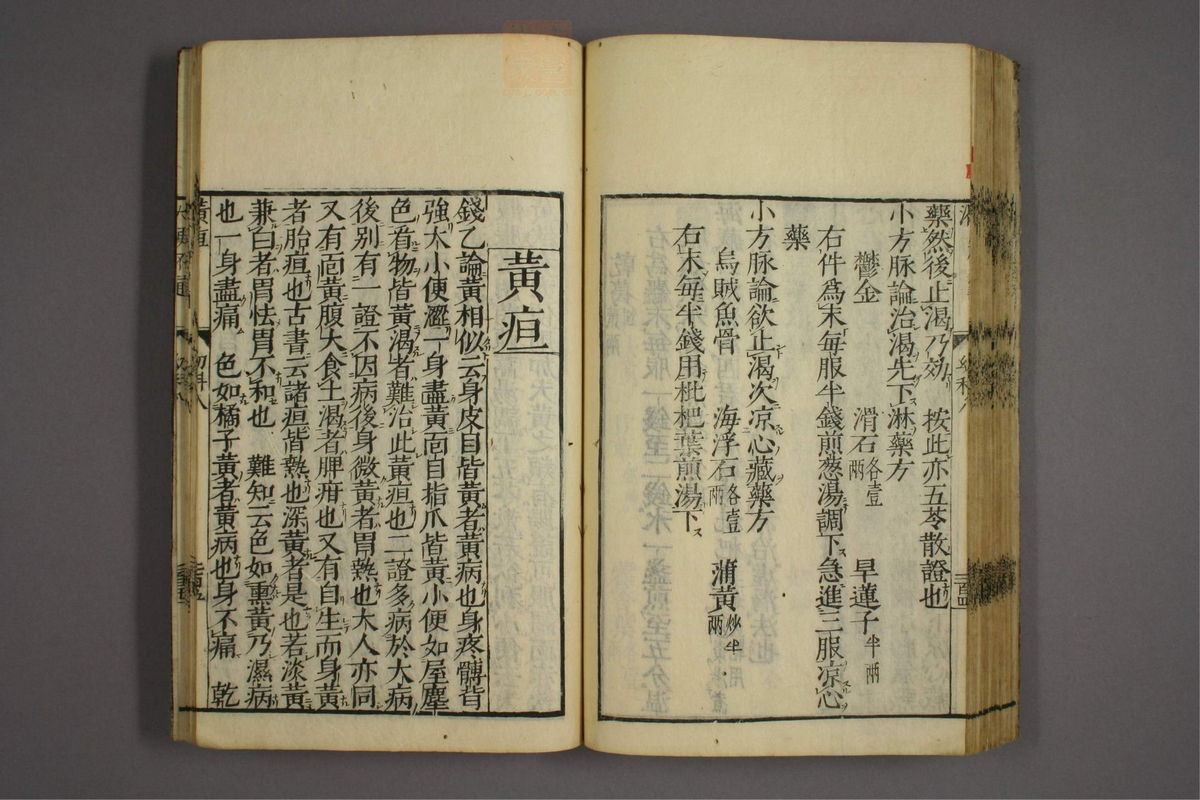 藥然後止渴乃効　按此亦五苓散證也
小方脉論治渴先下淋藥方
鬱金　滑石各壹兩　旱蓮子半兩
右件為末毎服半錢煎葱湯調下急進三服凉心
藥
小方脉論欲止渴次凉心藏藥方
烏賊魚骨　海浮石各壹兩　蒲黃炒半兩
右末毎半錢用枇杷葉煎湯下
黃疸
錢乙論黃相似云身皮目皆黃者黃病也身疼髆背
強大小便澀一身盡黃面目指爪皆黃小便如屋塵
色看物皆黃渴者難治此黃疸也二證多病於大病
後别有一證不因病後身微黃者胃熱也大人亦同
又有面黃腹大食土渴者脾疳也又有自生而身黃
者胎疸也古書云諸疸皆熱也深黃者是也若淡黃
兼白者胃怯胃不和也　難知云色如熏黃乃濕病
也一身盡痛　色如橘子黃者黃病也身不痛　乾
黃疸